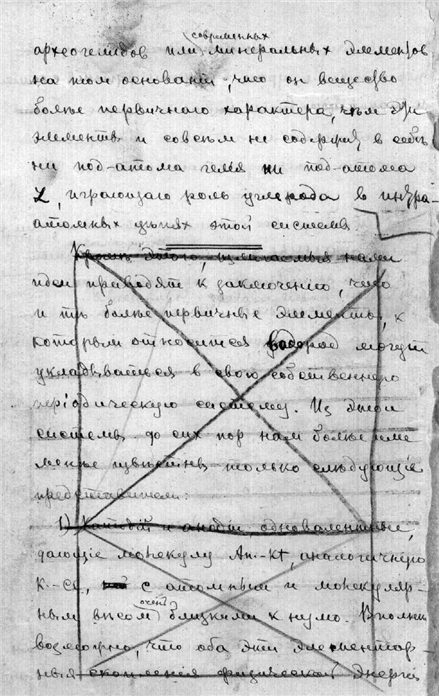 современных
археогелидов или минеральных элементов
на том основаніи, что он вещество
болѣе первичнаго характера, чѣм эти
элементы и совсѣм не содержит в себѣ
ни под-атома гелія ни под-атома
Z, играющаго роль углерода в интра-
атомных цѣпях этой системы
Кромѣ этого, излагаемыя нами
идеи приводят к заключению, что
и тѣ болѣе первичные элементы, к
которым относится водород могут
укладываться в свою собственную
періодическую систему. Из этой
системы до сих пор нам болѣе или
менѣе извѣстны только слѣдующіе
представители:
1) Катодій и анодій одновалентные,
дающіе молекулу An-Kt, аналогичную
K-Cl, с атомным и молекуляр-
очень
ным вѣсом близкими к нулю. Вполнѣ
возможно, что оба эти элементар-
ныя скопленія физической энергіи